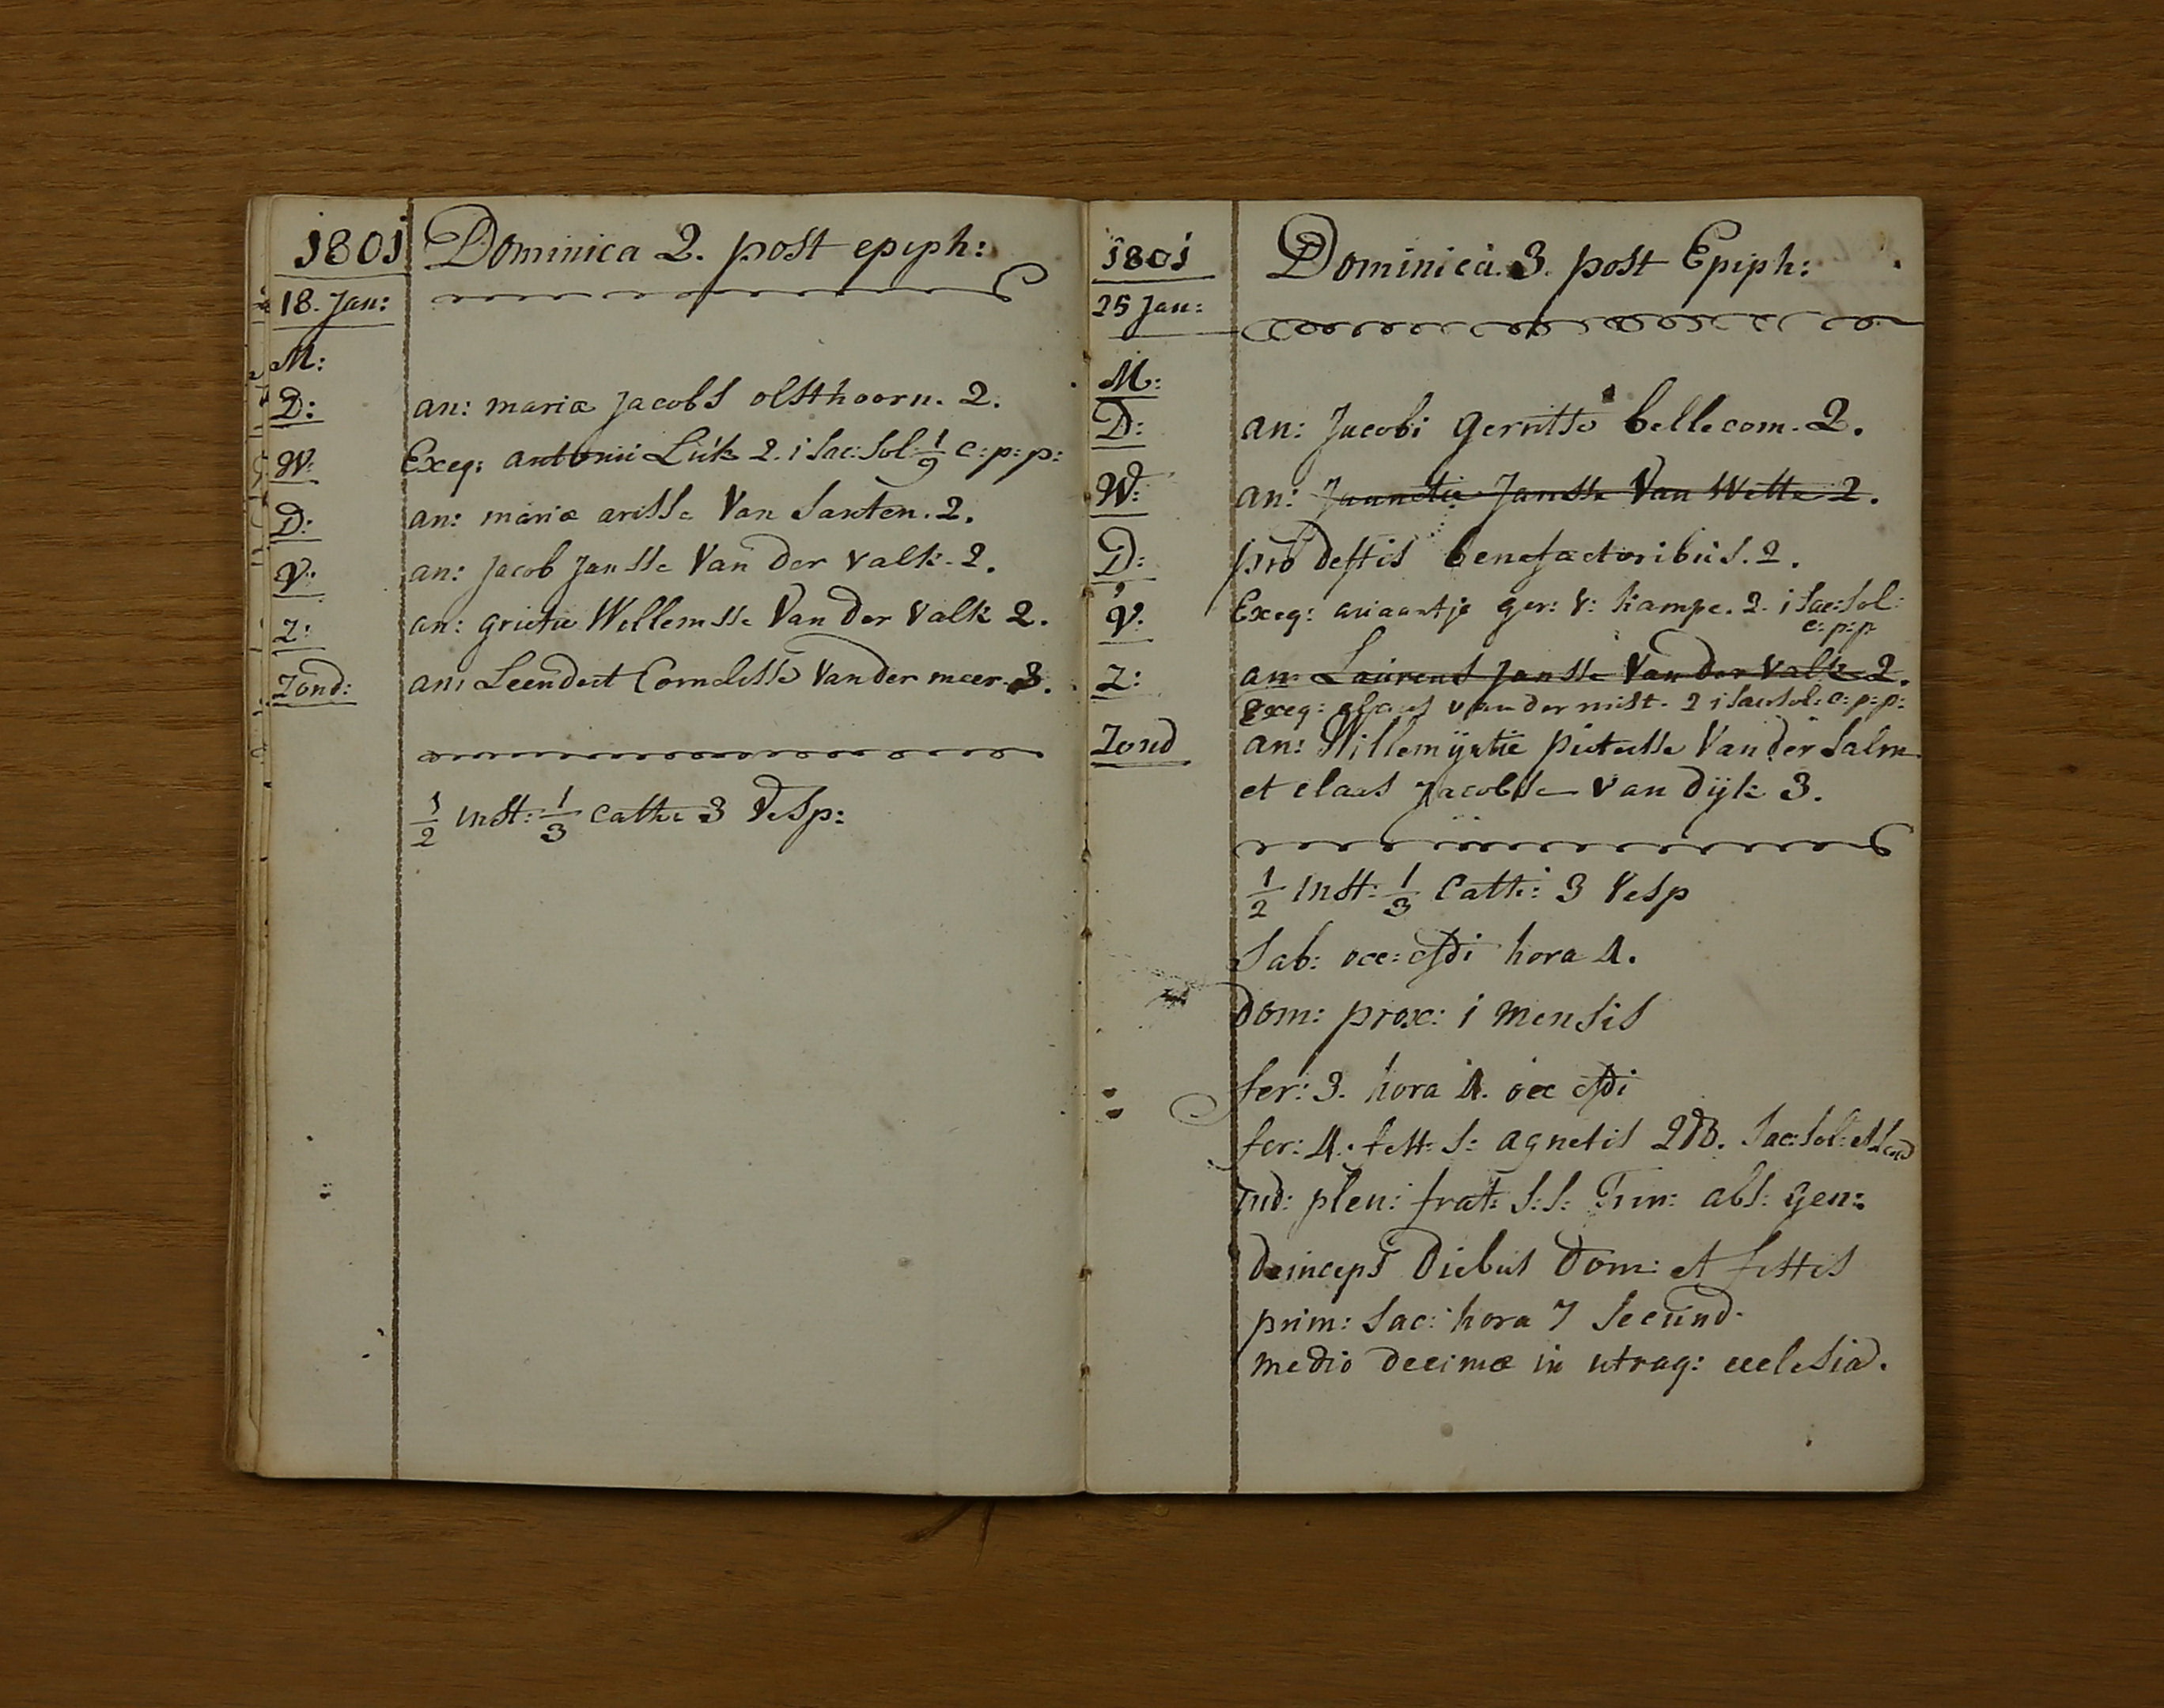 1801 Dominica 2. post epiph:
18. Jan:
M:
D: an: mariæ Jacobs olsthoorn. 2.
W: Exeq: antonii Luk 2. i Sac: Sol: 1/9 c: p: p:
D: an: mariæ arisse Van Santen. 2.
V: an: Jacob Jansse Van der valk. 2.
Z: an: grietie Willemsse Van der Valk 2.
Zond: an: Leendert Cornelisse Van der meer. 3.
1/2 inst: 1/3 cathe 3 Vesp:
1801 Dominica. 3. post Epiph:
25 Jan:
M:
D: an: Jacobi gerritse bellecom. 2.
W: an: Jannetie Jansse Van Wette 2.
D: pro deftis benefactoribus. 2.
V: Exeq: ariaantje ger: v: kampe. 2. i Sac: Sol:
c: p: p
Z: an: Laurens Jansse Van der Valk 2.
Exeq: van der mist. 2 i Sac: Sol: c: p: p:
Zond an: Willemijntie pieterse Van der Salm
et claas Jacobse van Dijk 3.
1/2 inst: 1/3 Cath: 3 Vesp
Sab: occ: cfdi hora 4.
Dom: prox: i mensis
fer: 3. hora 4. occ cfdi
fer: 4. fest: S: agnetis Sac: Sol: et
Ind: plen: frat: S: S: Trin: abs: gen:
Deinceps Diebus Dom: et festis
prim: Sac: hora 7 Secund.
medio decimæ in utraq: ecclesia.